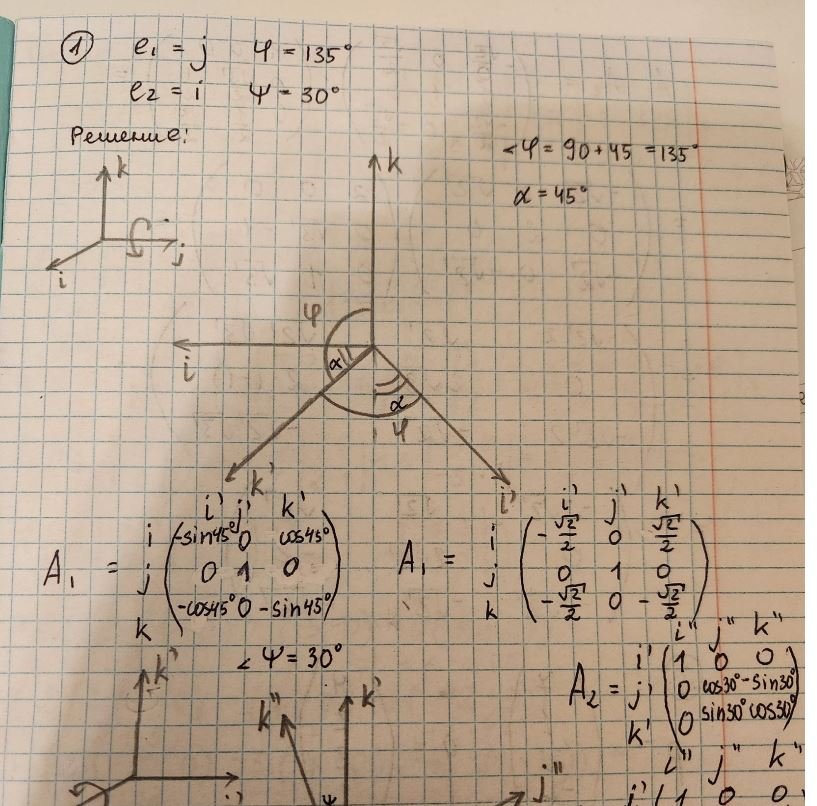 ① e₁ = j φ = 135°
e₂ = i ψ = 30°
Решение:
<φ = 90 + 45 = 135°
α = 45°
k
j
i
k
φ
i
α
α
φ
k'
i'
i' j' k'
i -sin45° 0 cos45°
A₁ = j 0 1 0
k -cos45° 0 -sin45°
i' j' k'
i -√2/2 0 √2/2
A₁ = j 0 1 0
k -√2/2 0 -√2/2
< ψ = 30°
i'' j'' k''
i' 1 0 0
A₂ = j' 0 cos30° -sin30°
k' 0 sin30° cos30°
k'
k'' k'
ψ
j''
i'' j'' k''
i' 1 0 0